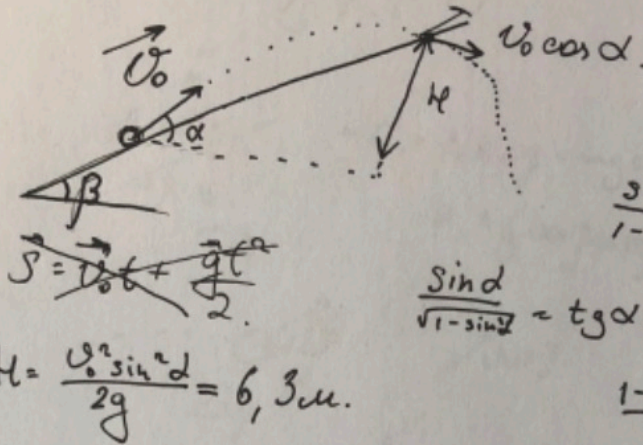 v₀ cos α
v₀
α
H
β
S = v₀t + gt²/2.
sin α / √1-sin²α = tg α
H = v₀² sin² α / 2g = 6,3 м.
1-